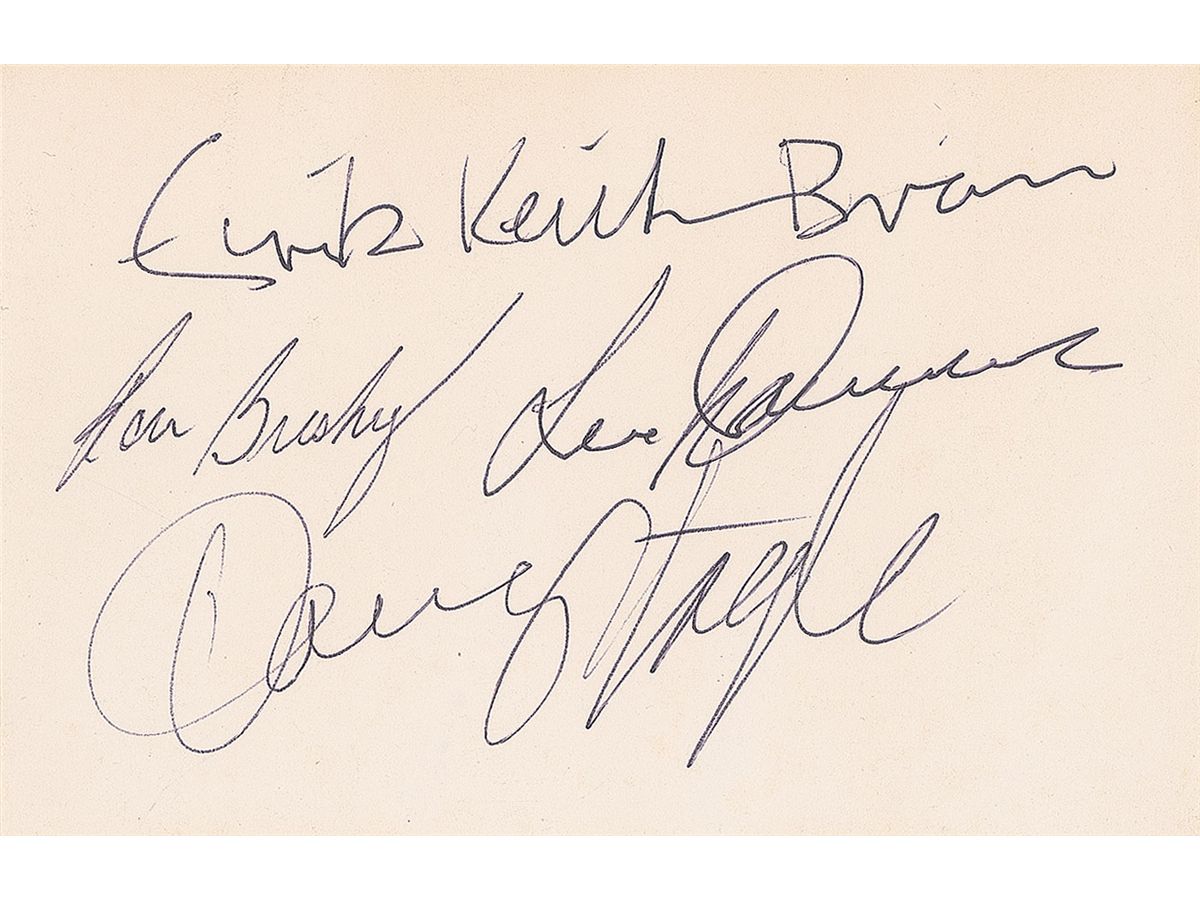 Erik Keith Brann
Ron Bushy Lee Dorman
Doug Ingle